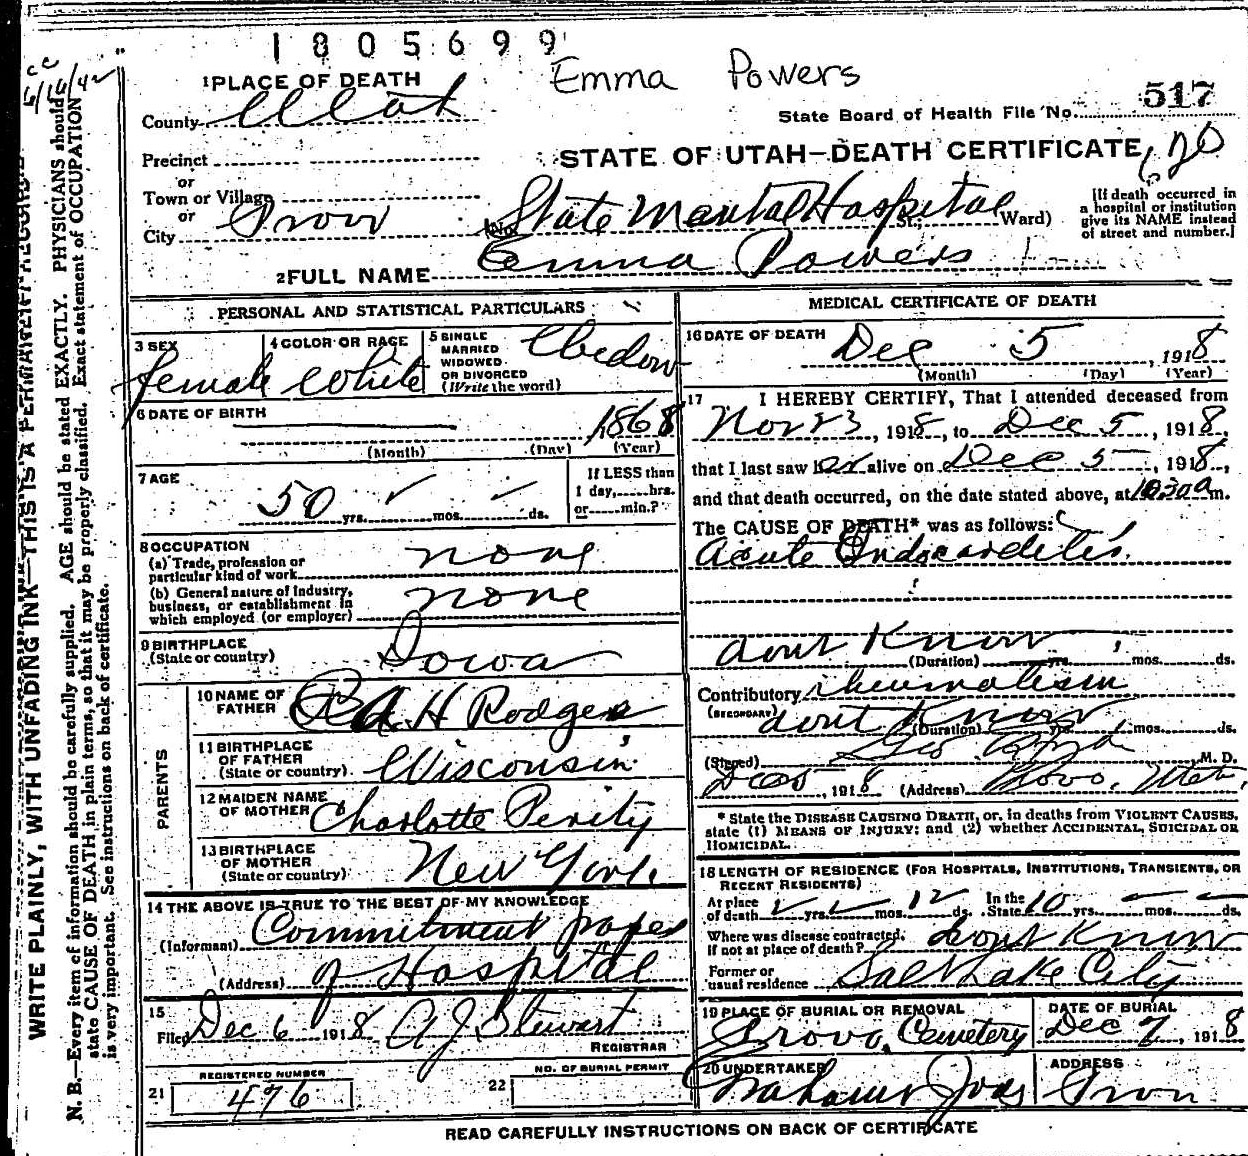 1805699
Emma Powers
cc
6/16/42
517
State Board of Health File No.
1 PLACE OF DEATH
County Utah
STATE OF UTAH—DEATH CERTIFICATE
Precinct
or
Town or Village
or
City Provo (No. State Mental Hospital St.; Ward)
[If death occurred in
a hospital or institution
give its NAME instead
of street and number.]
2 FULL NAME Emma Powers
PERSONAL AND STATISTICAL PARTICULARS
3 SEX
female
4 COLOR OR RACE
White
5 SINGLE
MARRIED
WIDOWED
OR DIVORCED
(Write the word)
Widow
6 DATE OF BIRTH
1868
(Month) (Day) (Year)
7 AGE
50 yrs. mos. ds.
If LESS than
1 day, hrs.
or min.?
8 OCCUPATION
(a) Trade, profession or
particular kind of work none
(b) General nature of industry,
business, or establishment in
which employed (or employer) none
9 BIRTHPLACE
(State or country) Iowa
PARENTS
10 NAME OF
FATHER H Rodgers
11 BIRTHPLACE
OF FATHER
(State or country) Wisconsin
12 MAIDEN NAME
OF MOTHER Charlotte
13 BIRTHPLACE
OF MOTHER
(State or country) New York.
14 THE ABOVE IS TRUE TO THE BEST OF MY KNOWLEDGE
(Informant) Commitment paper
(Address) of Hospital
15
Filed Dec 6 1918 A J Stewart
REGISTRAR
21 REGISTERED NUMBER
476
22 NO. OF BURIAL PERMIT
MEDICAL CERTIFICATE OF DEATH
16 DATE OF DEATH
Dec 5, 1918
(Month) (Day) (Year)
17 I HEREBY CERTIFY, That I attended deceased from
Nov 23, 1918, to Dec 5, 1918,
that I last saw her alive on Dec 5, 1918,
and that death occurred, on the date stated above, at 10.30 a m.
The CAUSE OF DEATH* was as follows:
Acute Endocarditis.
dont Know
(Duration) yrs. mos. ds.
Contributory rheumatism
(SECONDARY)
dont Know (Duration) yrs. mos. ds.
(Signed) Geo M. D.
Dec 5, 1918 (Address) Provo, Utah,
* State the DISEASE CAUSING DEATH, or, in deaths from VIOLENT CAUSES,
state (1) MEANS OF INJURY; and (2) whether ACCIDENTAL, SUICIDAL OR
HOMICIDAL.
18 LENGTH OF RESIDENCE (FOR HOSPITALS, INSTITUTIONS, TRANSIENTS, OR
RECENT RESIDENTS)
At place
of death yrs. mos. 12 ds.
In the
State 10 yrs. mos. ds.
Where was disease contracted,
if not at place of death? dont Know
Former or
usual residence Salt Lake City
19 PLACE OF BURIAL OR REMOVAL
Provo, Cemetery
DATE OF BURIAL
Dec 7, 1918
20 UNDERTAKER
ADDRESS
Provo
READ CAREFULLY INSTRUCTIONS ON BACK OF CERTIFICATE
WRITE PLAINLY, WITH UNFADING INK—THIS IS A PERMANENT RECORD
N. B.—Every item of information should be carefully supplied. AGE should be stated EXACTLY. PHYSICIANS should
state CAUSE OF DEATH in plain terms, so that it may be properly classified. Exact statement of OCCUPATION
is very important. See instructions on back of certificate.